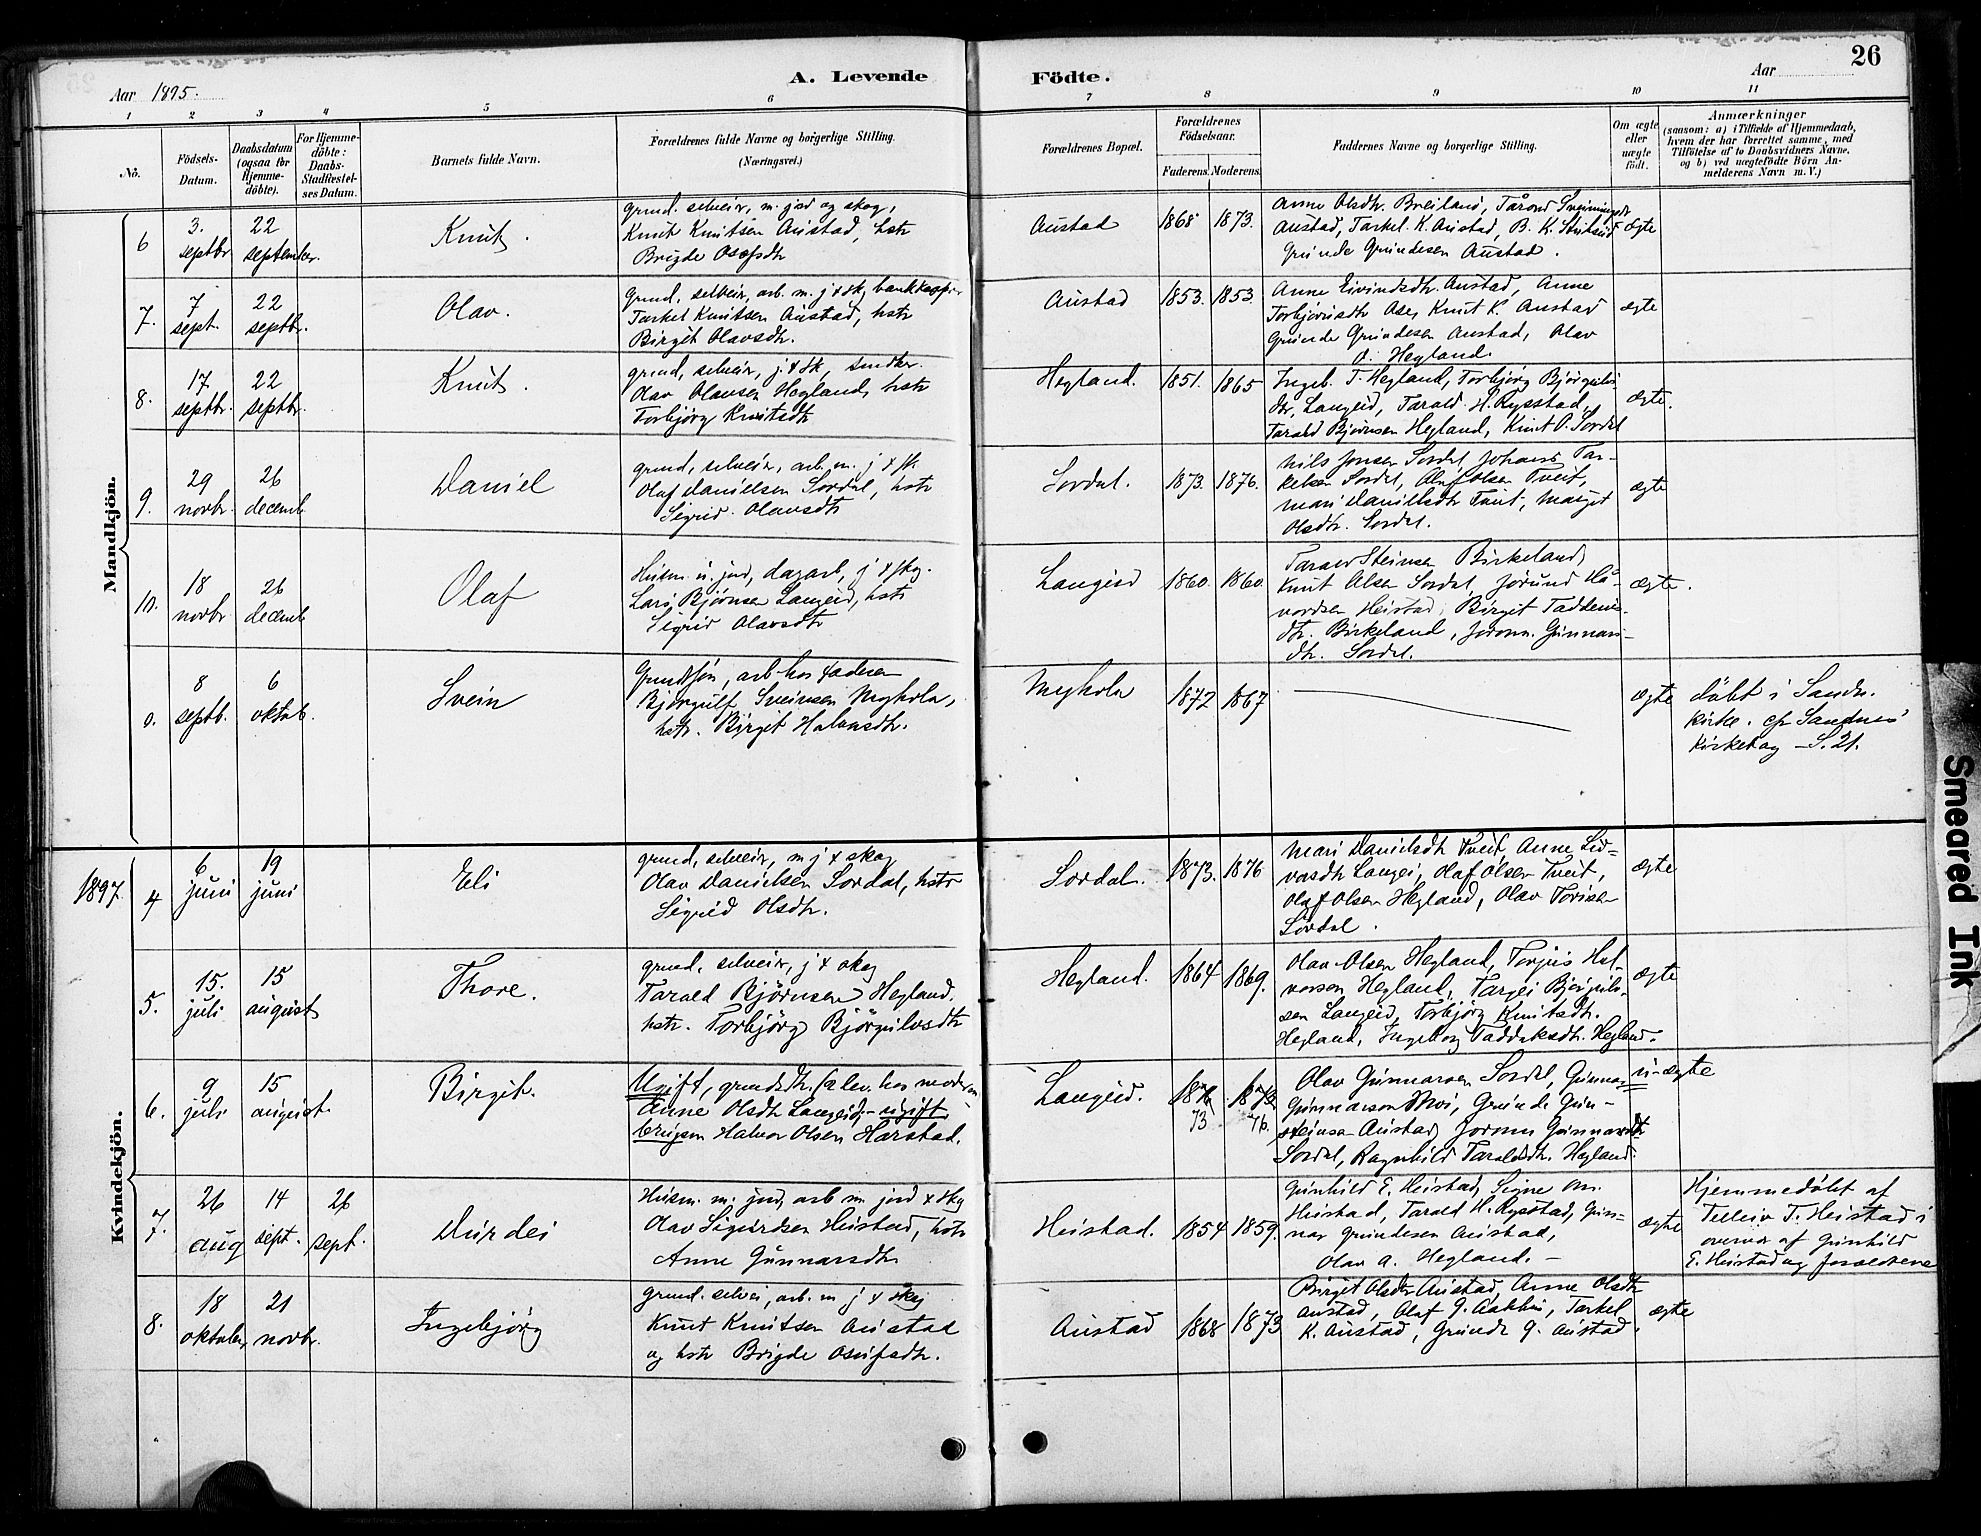 26
A. Levende Födte.
Aar 1895.
Aar
1 2 3 4 5 6 7 8 9 10 11
No.
Födsels-
Datum.
Daabsdatum
(ogsaa for
Hjemme-
döbte).
For Hjemme-
döbte:
Daabs-
Stadfæstel-
ses Datum.
Barnets fulde Navn.
Forældrenes fulde Navne og borgerlige Stilling.
(Næringsvei.)
Forældrenes Bopæl.
Forældrenes
Födselsaar.
Faderens. Moderens.
Faddernes Navne og borgerlige Stilling.
Om ægte
eller
uægte
født.
Anmærkninger
(saasom: a) i Tilfælde af Hjemmedaab,
hvem der har forrettet samme, med
Tilföielse af to Daabsvidners Navne,
og b) ved uægtefödte Börn An-
melderens Navn m. V.)
Mandkjön.
6
3.
septbr
22
september.
Knut.
grund. selveier, m. jord og skog,
Knut Knutsen Austad, hstr
Brigde Osofsdtr
Austad
1868
1873.
Anne Olsdtr. Breiland, Tårand Sveinungsdtr
Austad, Tarkel K. Austad,
Grunde Grundesen Austad.
ægte
7.
7
sept.
22
septbr.
Olav.
grund, selveier, arb. m. j & sk,
Tarkel Knutsen Austad, hstr
Birgit Olavsdtr.
Austad
1853.
1853.
Anne Eivindsdtr. Austad, Anne
Torbjørnsdtr Ose, Knut K. Austad
Grunde Grundesen Austad, Olav
O. Hegland.
ægte
8.
17
septbr.
22
septbr.
Knut.
grund, selveier, j & sk, snedker.
Olav Olavsen Hegland, hstr
Torbjörg Knutsdtr
Hegland.
1851.
1865
Ingeb. T. Hegland, Torbjörg Bjørgulvs-
dtr, Langeid, Tarald H. Rysstad,
Tarald Bjørnsen Hegland, Knut O. Sordal
ægte.
9.
29
novbr.
26
decemb
Daniel
grund, selveier, arb. m. j & sk.
Olaf Danielsen Sordal, hstr
Sigrid Olavsdtr
Sordal.
1873.
1876.
Nils Jonsen Sordal, Johans Tar-
kelsen Sordal, Olaf Olsen Tveit,
Mari Danielsdtr Tveit, Marget
Olsdtr. Sordal.
ægte
10.
18
novbr
26
decemb
Olaf
Husm. u. jord, dagarb, j & skog.
Lars Bjørnsen Langeid, hstr
Sigrid Olavsdtr
Langeid
1860.
1860.
Tarald Steinsen Birkeland,
Knut Olsen Sordal, Jorund Hå-
vordsen Heistad, Birgit Taddeus-
dtr. Birkeland, Joronn Gunnars-
dtr. Sordal.
ægte.
0.
8
septb.
6
oktob.
Svein
Grundsøn, arb hos faderen
Bjørgulf Sveinsen Myhola,
hstr. Birgit Halvorsdtr.
1872
1867
ægte
døbt i Sandn.
kirke. cfr Sandnes
Kirkebog – S. 21.
Kvindekjön.
1897
4
6
juni
19
juni
Eli
grund, selveier, m j & skog
Olav Danielsen Sordal, hstr
Sigrid Olsdtr.
Sordal.
1873.
1876
Mari Danielsdtr Tveit, Anne Lid-
vorsdtr Langei, Olaf Olsen Tveit,
Olaf Olsen Hegland, Olav
Sordal.
ægte
5.
15.
juli
15
august
Thore.
grund, selveier, j & skog
Tarald Björnsen Hegland,
hstr. Torbjörg Björgulvsdtr
Hegland.
1864
1869.
Olav Olsen Hegland, Torjus Hal-
vorsen Hegland, Targei Bjørgulv-
sen Langeid, Torbjörg Knutsdtr.
Hegland, Ingeborg Taddeksdtr. Hegland.
ægte
6.
9
juli
15
august.
Birgit.
Ugift, grundsdtr. (a lev. hos moderen –
Anne Olsdtr Langeid, – ugift
Halvor Olsen Harstad.
Langeid.
73
76.
Olav Gunnarsen Sordal, Gunnar
Gunnarson Moi, Grunde Gun-
steinsen Austad, Joronn Gunnarsdtr
Sordal, Ragnhild Taraldsdtr. Hegland.
u-ægte
7.
26
aug
14
sept.
26
sept.
Durdei
Husm. m. jord, arb m. jord & skog
Olav Sigurdsen Heistad, hstr
Anne Gunnarsdtr
Heistad.
1854
1859.
Gunhild E. Heistad, Signe
Heistad, Tarald H. Rysstad, Gun-
nar Grundesen Austad,
Olav A. Hegland. –
ægte
Hjemmedøbt af
Telleiv T. Heistad i
overvær af Gunhild
E. Heistad og forældrene
8.
18
oktober,
21
novbr.
Ingebjörg
Grund. selvei, arb. m j & skog
Knut Knutsen Austad
og hstr Brigde Osufsdtr.
Austad
1868
1873
Birgit Olsdtr Austad, Anne Olsdtr
Austad, Olaf G. Aakhus, Tarkel
K. Austad, Grunde G. Austad.
ægte
Smeared Ink